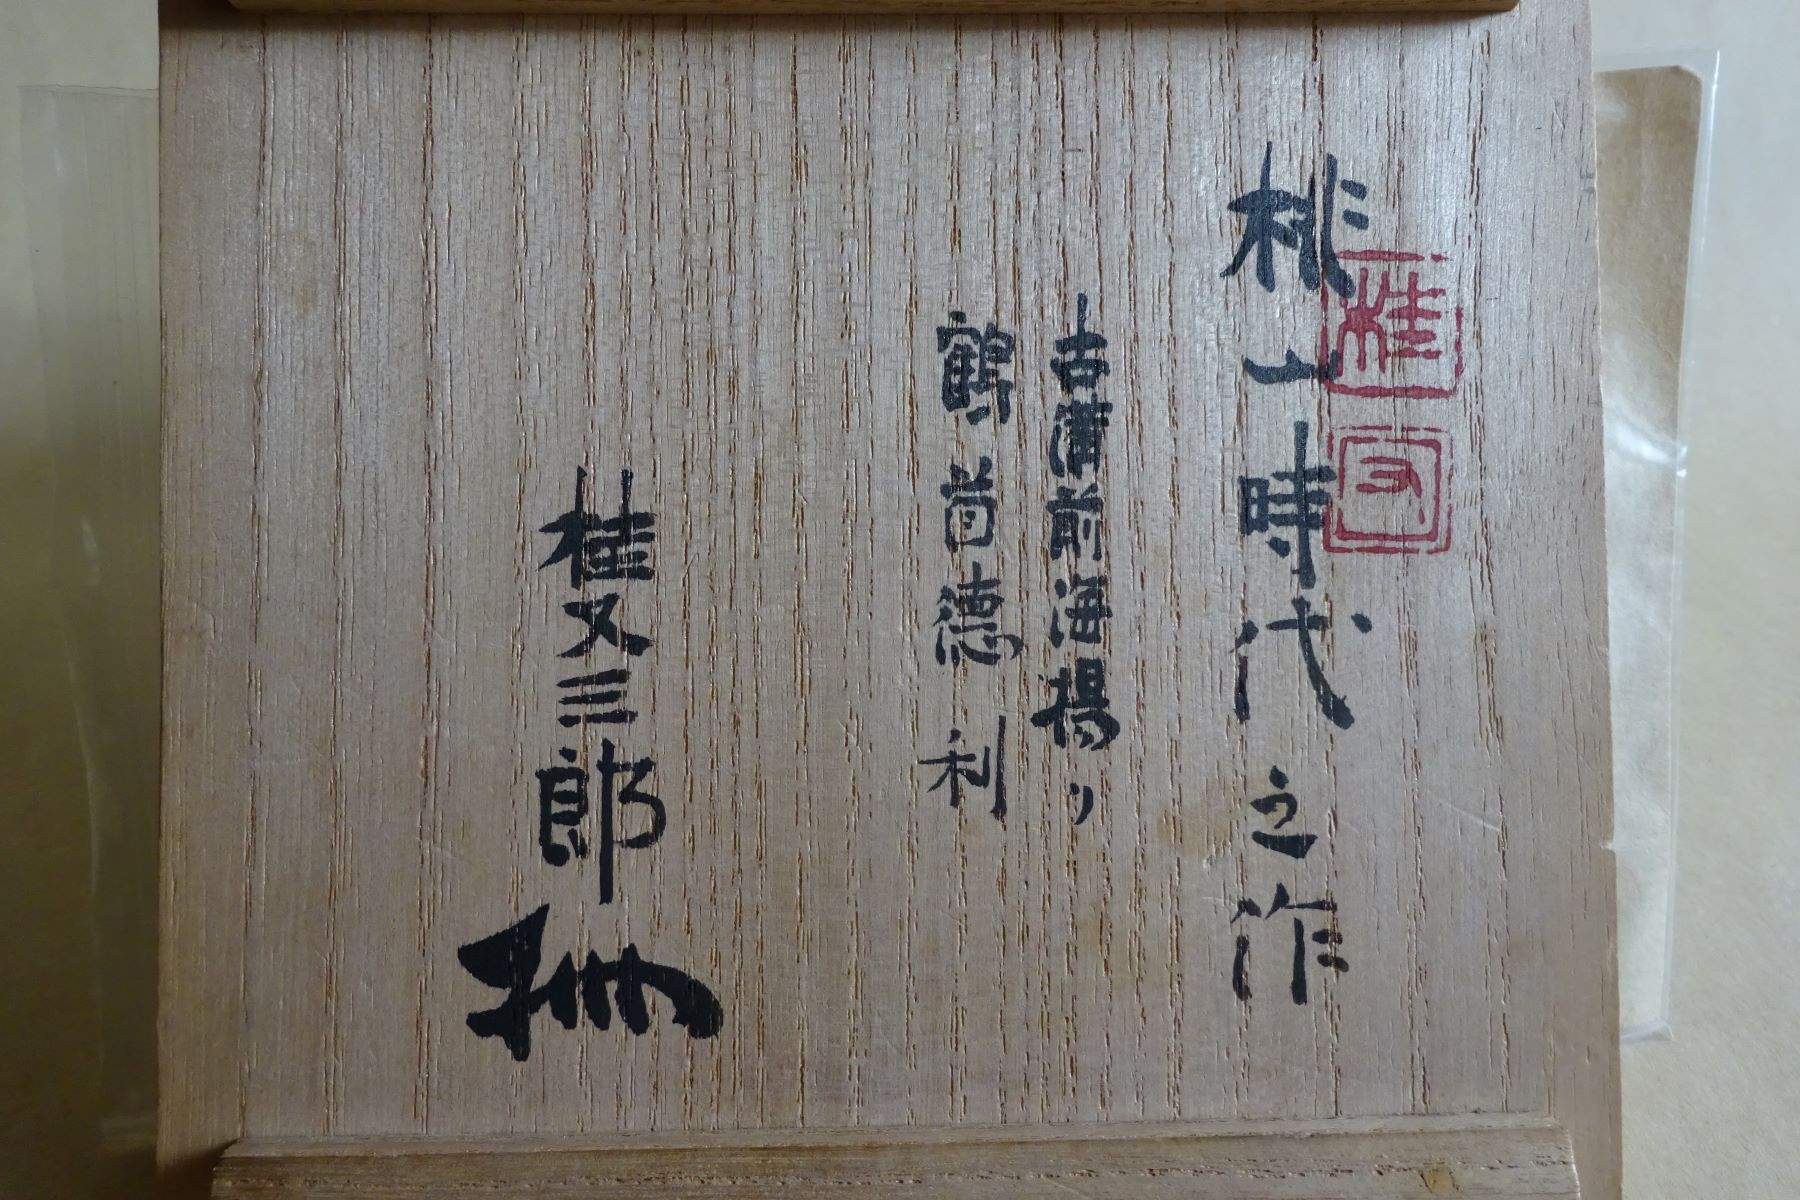 桃山時代之作
桂
又
古備前海揚り
鶴首徳利
桂又三郎